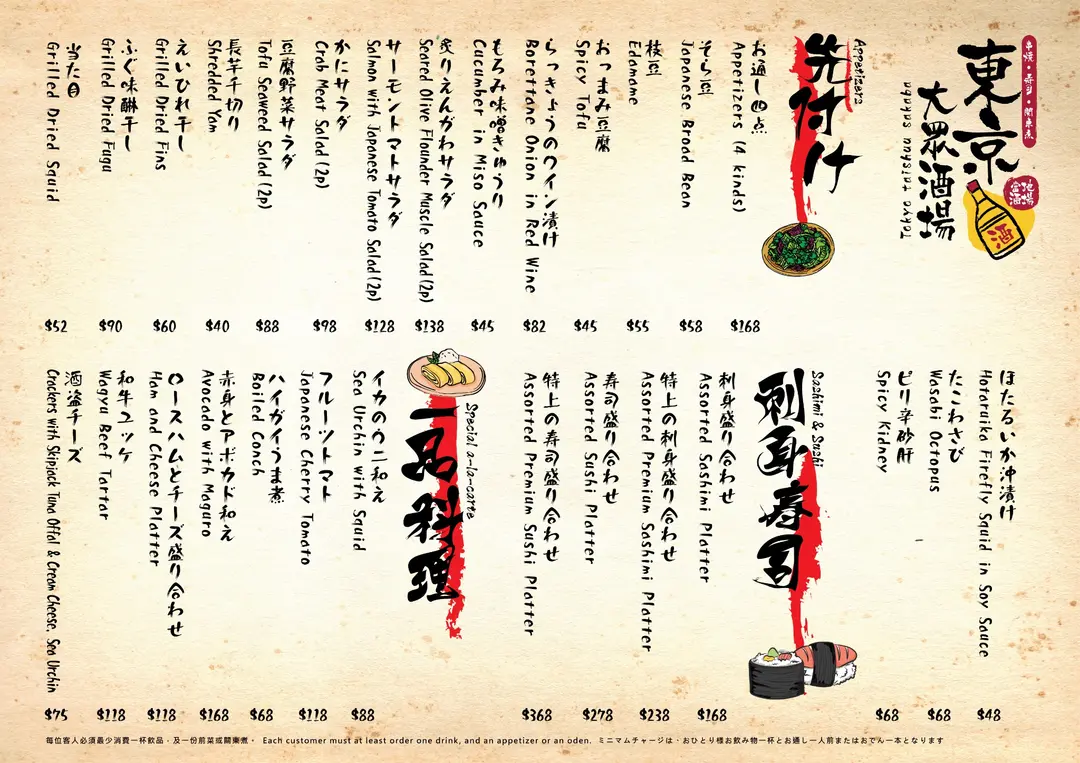 串燒・壽司・関東煮
東京
大眾酒場
Tokyo taishuu sakaba
酒
先付け
Appetizers
お通し四点
Appetizers (4 kinds)
$168
そら豆
Japanese Broad Bean
$58
枝豆
Edamame
$55
おつまみ豆腐
Spicy Tofu
$45
らっきょうのワイン漬け
Borettane Onion in Red Wine
$82
もろみ味噌きゅうり
Cucumber in Miso Sauce
$45
炙りえんがわサラダ
Seared Olive Flounder Muscle Salad (2p)
$138
サーモントマトサラダ
Salmon with Japanese Tomato Salad (2p)
$128
かにサラダ
Crab Meat Salad (2p)
$98
豆腐野菜サラダ
Tofu Seaweed Salad (2p)
$88
長芋千切り
Shredded Yam
$40
えいひれ干し
Grilled Dried Fins
$60
ふぐ味醂干し
Grilled Dried Fugu
$90
当たり目
Grilled Dried Squid
$52
ほたるいか沖漬け
Hotaruika Firefly Squid in Soy Sauce
$48
たこわさび
Wasabi Octopus
$68
ピリ辛砂肝
Spicy Kidney
$68
刺身寿司
Sashimi & Sushi
刺身盛り合わせ
Assorted Sashimi Platter
$168
特上の刺身盛り合わせ
Assorted Premium Sashimi Platter
$238
寿司盛り合わせ
Assorted Sushi Platter
$278
特上の寿司盛り合わせ
Assorted Premium Sushi Platter
$368
一品料理
Special a-la-carte
イカのウニ和え
Sea Urchin with Squid
$88
フルーツトマト
Japanese Cherry Tomato
$118
ハイガイうま煮
Boiled Conch
$68
赤身とアボカド和え
Avocado with Maguro
$168
ロースハムとチーズ盛り合わせ
Ham and Cheese Platter
$118
和牛ユッケ
Wagyu Beef Tartar
$118
酒盗チーズ
Crackers with Skipjack Tuna Offal & Cream Cheese, Sea Urchin
$75
每位客人必須最少消費一杯飲品，及一份前菜或關東煮。 Each customer must at least order one drink, and an appetizer or an oden. ミニマムチャージは、おひとり様お飲み物一杯とお通し一人前またはおでん一本となります